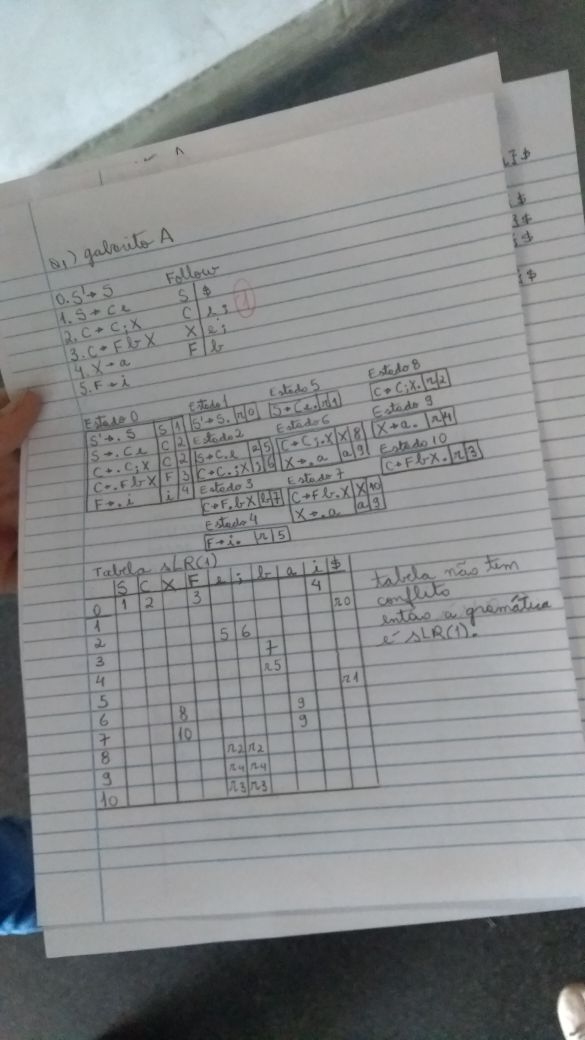 Q1) gabarito A
Follow
0. S' → S
1. S → Ce
2. C → C;X
3. C → FbX
4. X → a
5. F → i
S | $
C | e ;
X | e ;
F | b
1
Estado 0
S' → .S | S | 1
S → .Ce | C | 2
C → .C;X | C | 2
C → .FbX | F | 3
F → .i | i | 4
Estado 1
S' → S. | r | 0
Estado 2
S → C.e | e | 5
C → C.;X | ; | 6
Estado 3
C → F.bX | b | 7
Estado 4
F → i. | r | 5
Estado 5
S → Ce. | r | 1
Estado 6
C → C;.X | X | 8
X → .a | a | 9
Estado 7
C → Fb.X | X | 10
X → .a | a | 9
Estado 8
C → C;X. | r | 2
Estado 9
X → a. | r | 4
Estado 10
C → FbX. | r | 3
Tabela SLR(1)
S C X F e ; b a i $
0 1 2 3 4
1 r0
2 5 6
3 7
4 r5
5 r1
6 8 9
7 10 9
8 r2 r2
9 r4 r4
10 r3 r3
tabela não tem
conflito
então a gramática
é SLR(1).